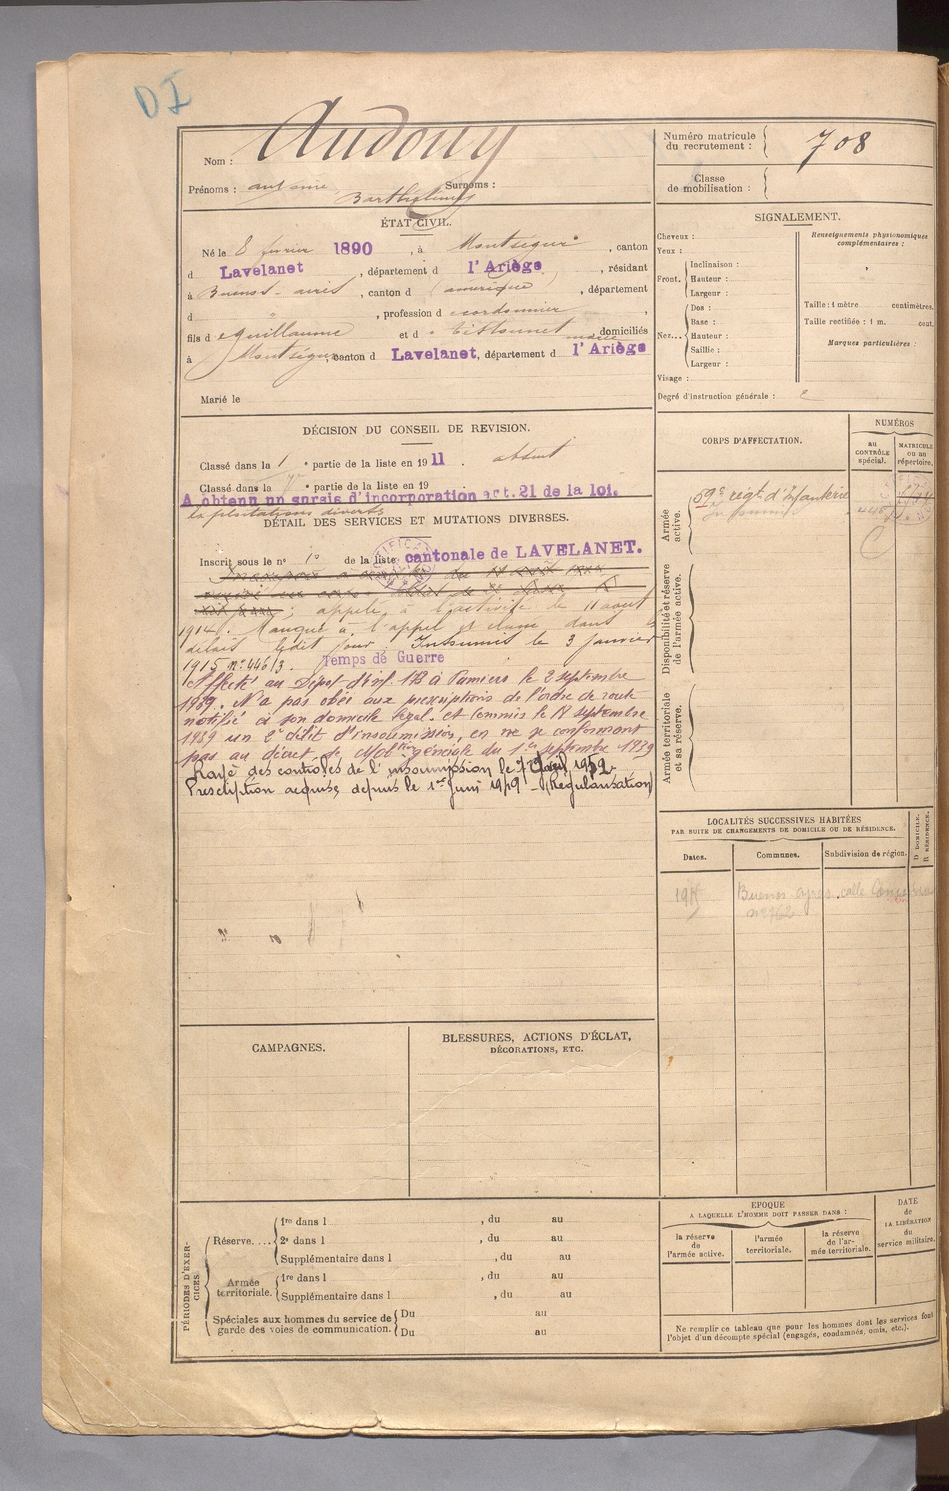 DI
Nom : Audouy
Prénoms : antoine Barthélemy Surnoms :
Numéro matricule
du recrutement : 708
Classe
de mobilisation :
ÉTAT CIVIL.
Né le 8 février 1890, à Montségur, canton
d Lavelanet, département d l'Ariège, résidant
à Buenos-aires, canton d amérique, département
d " , profession d cordonnier,
fils d e Guillaume et d domiciliés
à Montségur, canton d Lavelanet, département d l'Ariège
Marié le
SIGNALEMENT.
Cheveux :
Yeux :
Front. Inclinaison :
Hauteur :
Largeur :
Nez... Dos :
Base :
Hauteur :
Saillie :
Largeur :
Visage :
Renseignements physionomiques
complémentaires :
Taille : 1 mètre centimètres.
Taille rectifiée : 1 m. cent.
Marques particulières :
Degré d'instruction générale : 2
DÉCISION DU CONSEIL DE REVISION.
Classé dans la 1 e partie de la liste en 1911. absent
Classé dans la e partie de la liste en 19
A obtenu un sursis d'incorporation art. 21 de la loi.
DÉTAIL DES SERVICES ET MUTATIONS DIVERSES.
Inscrit sous le n° de la liste cantonale de LAVELANET.
; appelé à l'activité le 11 août
1914. Manqué à l'appel et dans
délais ledit jour. Insoumis le 3 janvier
1915 n° 446/3. Temps de Guerre
Affecté au Dépôt d'inf. 173 à Pamiers le 2 septembre
1939. N'a pas obéi aux prescriptions de l'ordre de route
notifié à son domicile légal. et commis le 18 septembre
1939 un 2e délit d'insoumission, en ne se conformant
pas au décret de Mobon générale du 1er septembre 1939
Rayé des contrôles de l'insoumission le 7 Avril 1952
Prescription acquise depuis le 1er Juin 1949 - (Régularisation)
CORPS D'AFFECTATION.
NUMÉROS
au
CONTRÔLE
spécial.
MATRICULE
ou au
répertoire.
Armée
active.
59e régt d'Infanterie
Insoumis 446
Disponibilité et réserve
de l'armée active.
Armée territoriale
et sa réserve.
LOCALITÉS SUCCESSIVES HABITÉES
PAR SUITE DE CHANGEMENTS DE DOMICILE OU DE RÉSIDENCE.
D DOMICILE.
R RÉSIDENCE.
Dates.
Communes.
Subdivision de région.
Buenos ayres calle
n° 762
CAMPAGNES.
BLESSURES, ACTIONS D'ÉCLAT,
DÉCORATIONS, ETC.
PÉRIODES D'EXER-
CICES.
Réserve.... 1re dans l , du au
2e dans l , du au
Supplémentaire dans l , du au
Armée
territoriale. 1re dans l , du au
Supplémentaire dans l , du au
Spéciales aux hommes du service de
garde des voies de communication. Du au
Du au
EPOQUE
A LAQUELLE L'HOMME DOIT PASSER DANS :
la réserve
de
l'armée active.
l'armée
territoriale.
la réserve
de l'ar-
mée territoriale.
DATE
de
LA LIBÉRATION
du
service militaire.
Ne remplir ce tableau que pour les hommes dont les services font
l'objet d'un décompte spécial (engagés, condamnés, omis, etc.).